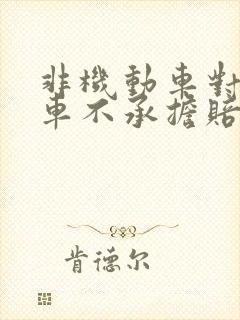 非機動車對
車不承擔賠
肯德尔